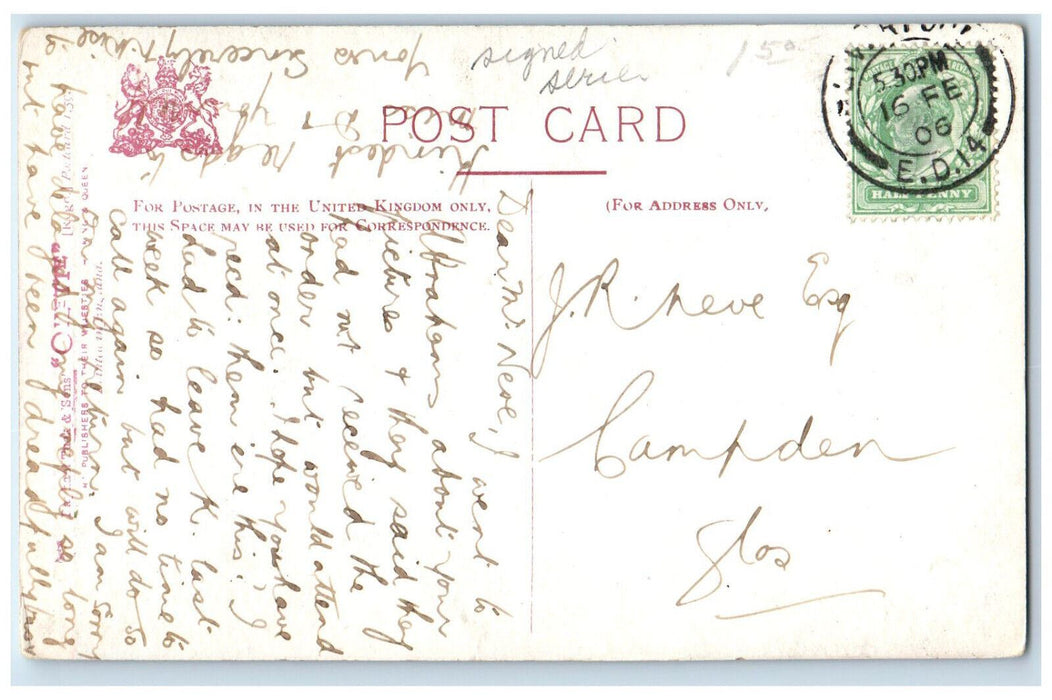 signed
series
1 50
POST CARD
FOR POSTAGE, IN THE UNITED KINGDOM ONLY,
THIS SPACE MAY BE USED FOR CORRESPONDENCE.
(FOR ADDRESS ONLY,
5.30PM
16 FE
06
E.D.14
HALF PENNY
J. R. Neve Esq
Campden
Glos
Dear Mr. Neve, I
went to
Abrahams about your
pictures & they said they
had not received the
order but would attend
at once. I hope you have
recd: them ere this. I
had to leave K. last
week so had no time to
call again but will do so
on my return. I am sorry
to have delayed my reply so long
but have been dreadfully busy
Kindest regards to
you
Yours Sincerely
& Sons'
PUBLISHERS TO THEIR MAJESTIES
KING & QUEEN